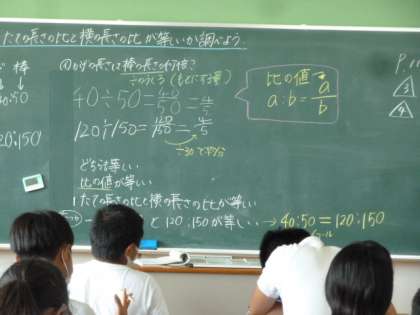 たての長さの比と横の長さの比が等しいか調べよう。
棒
40:50
120:150
かげの長さは棒の長さの何倍?
(もとにする量)
40÷50=40/50=4/5
120÷150=120/150=4/5
÷30で約分
どちらも等しい
比の値が等しい
たての長さの比と横の長さの比が等しい
と 120:150が等しい → 40:50=120:150
イコール
比の値→
a:b=a/b
P.
3
4